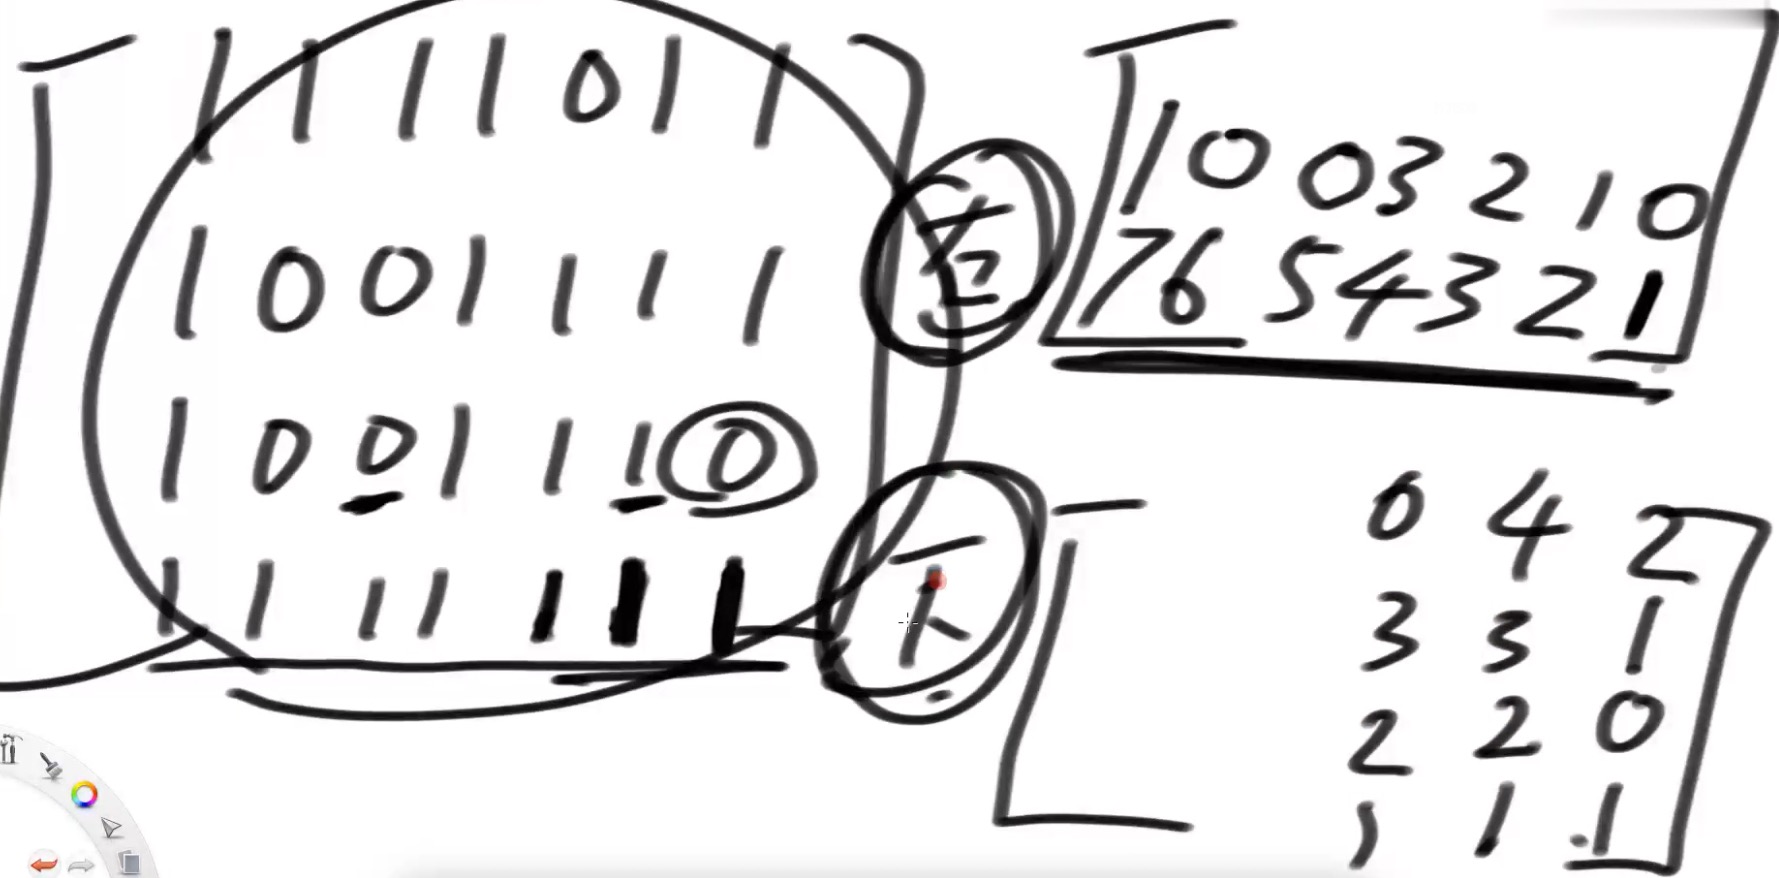 1 1 1 1 0 1 1
1 0 0 1 1 1 1
1 0 0 1 1 1 0
1 1 1 1 1 1 1
右
1 0 0 3 2 1 0
7 6 5 4 3 2 1
下
0 4 2
3 3 1
2 2 0
1 1 1